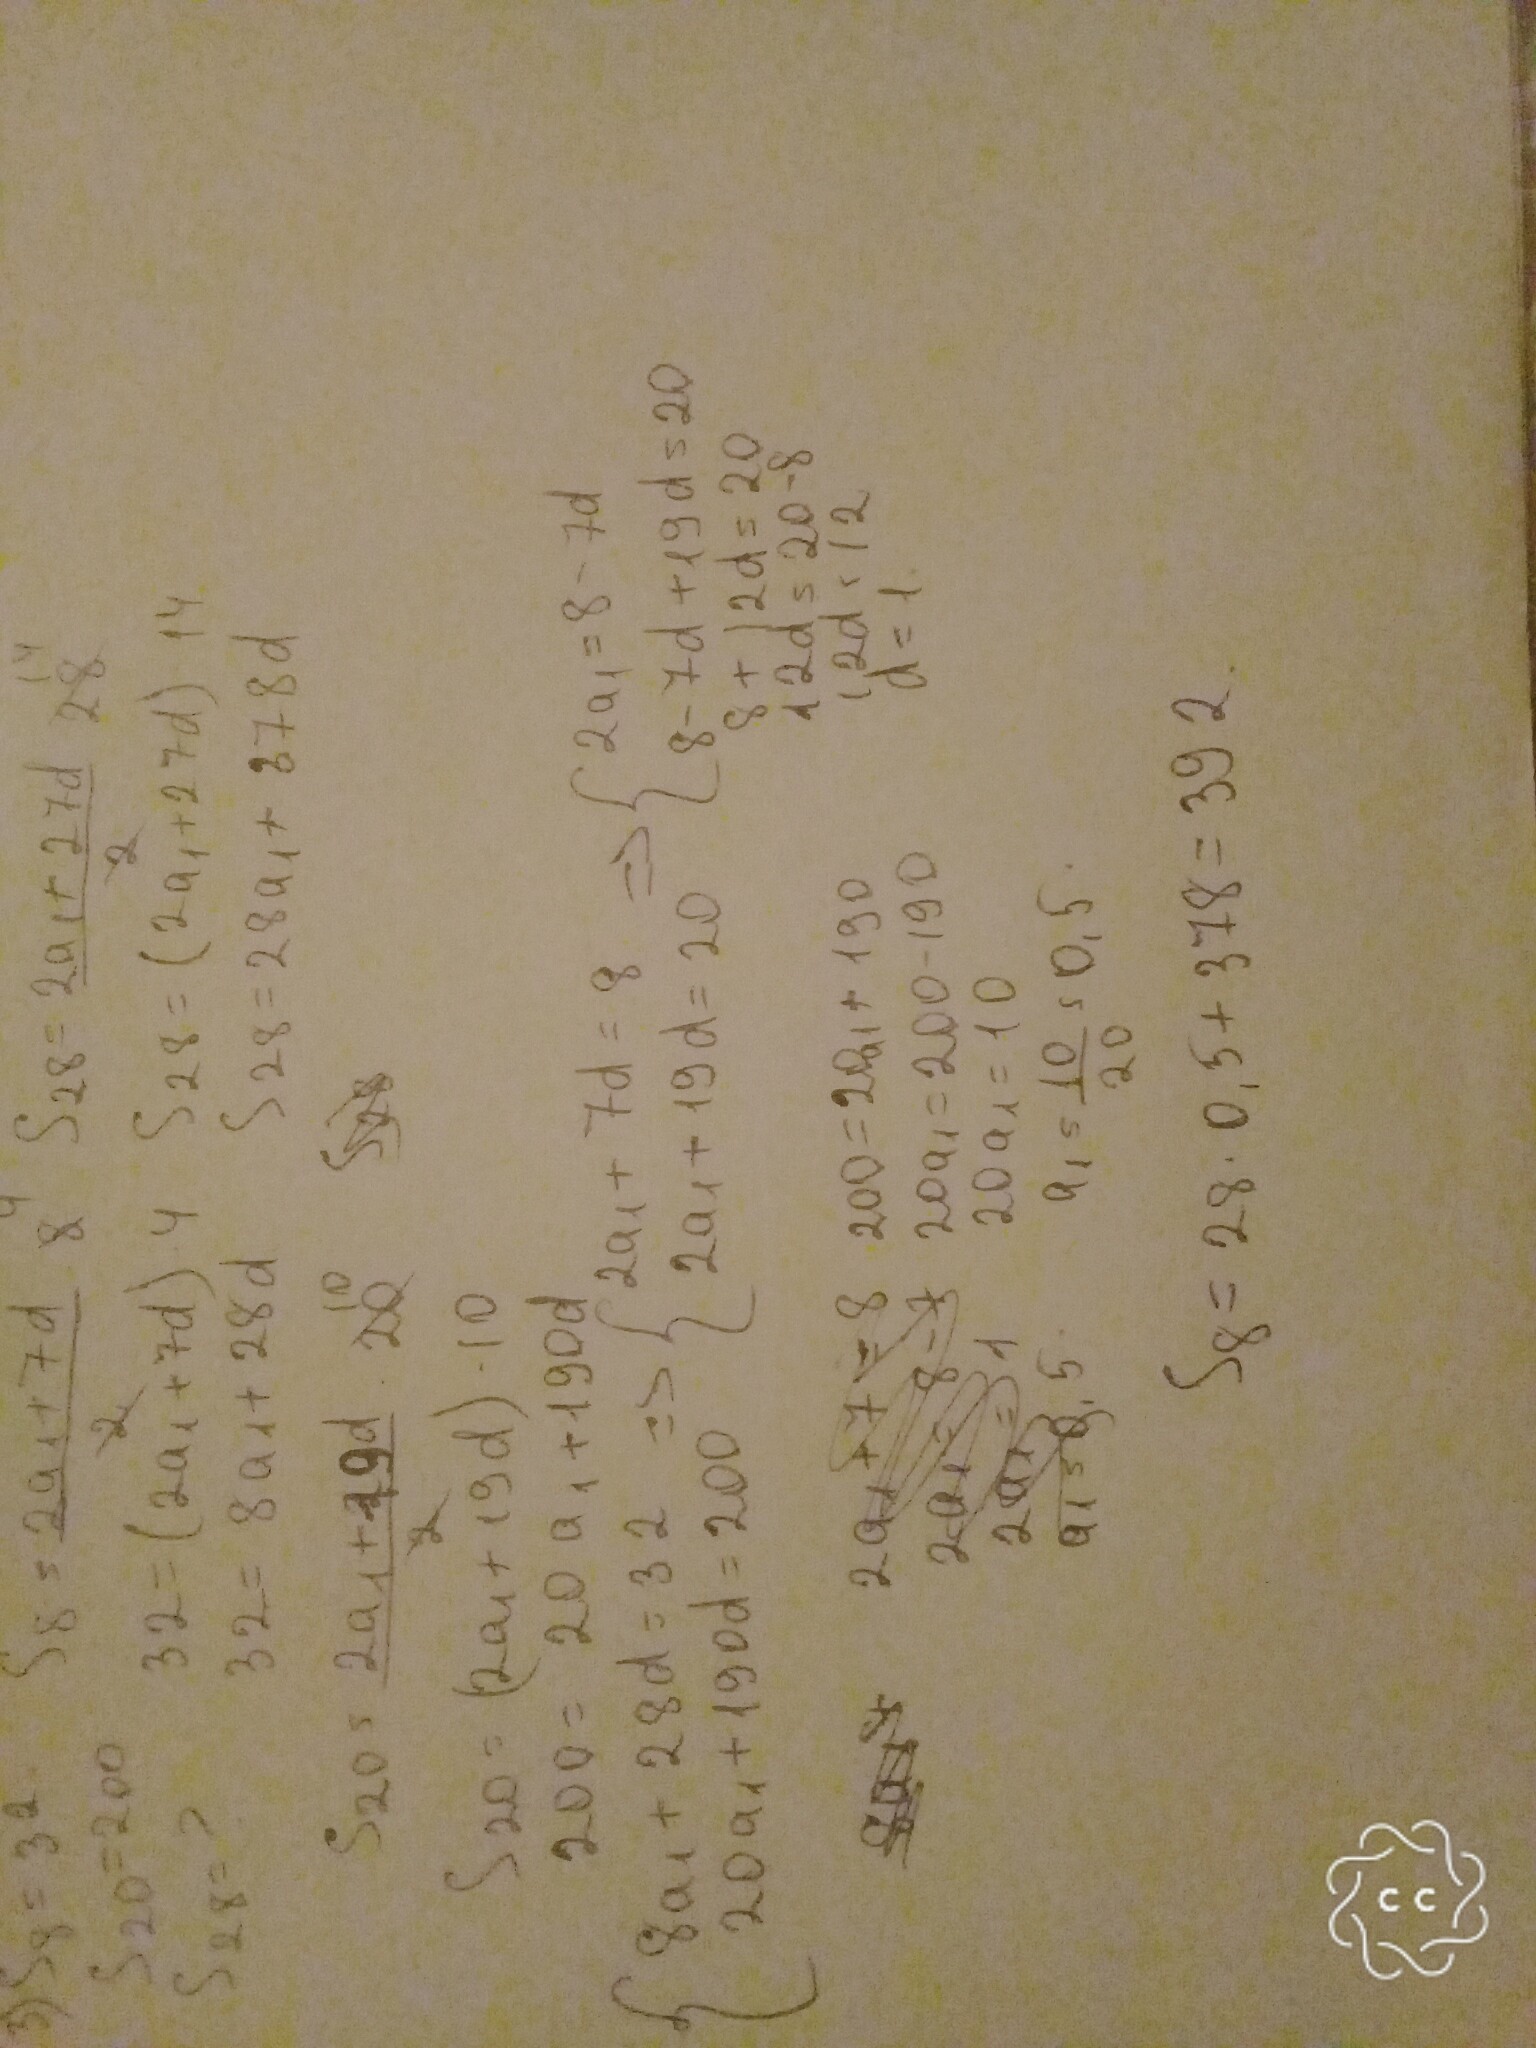 3) S8 = 32
S20 = 200
S28 = ?
S8 = 2a1 + 7d / 2 8 4
32 = (2a1 + 7d) · 4
32 = 8a1 + 28d
S28 = 2a1 + 27d / 2 28 14
S28 = (2a1 + 27d) 14
S28 = 28a1 + 378d
S20 = 2a1 + 19d / 2 · 20 10
S28
S20 = (2a1 + 19d) · 10
200 = 20a1 + 190d
{ 8a1 + 28d = 32
20a1 + 190d = 200
=> { 2a1 + 7d = 8
2a1 + 19d = 20
=> { 2a1 = 8 - 7d
8 - 7d + 19d = 20
8 + 12d = 20
12d = 20 - 8
12d = 12
d = 1.
2a1 + 7 = 8
2a1 = 8 - 7
2a1 = 1
a1 = 0,5.
200 = 20a1 + 190
20a1 = 200 - 190
20a1 = 10
a1 = 10 / 20 = 0,5.
S8 = 28 · 0,5 + 378 = 392.
CC